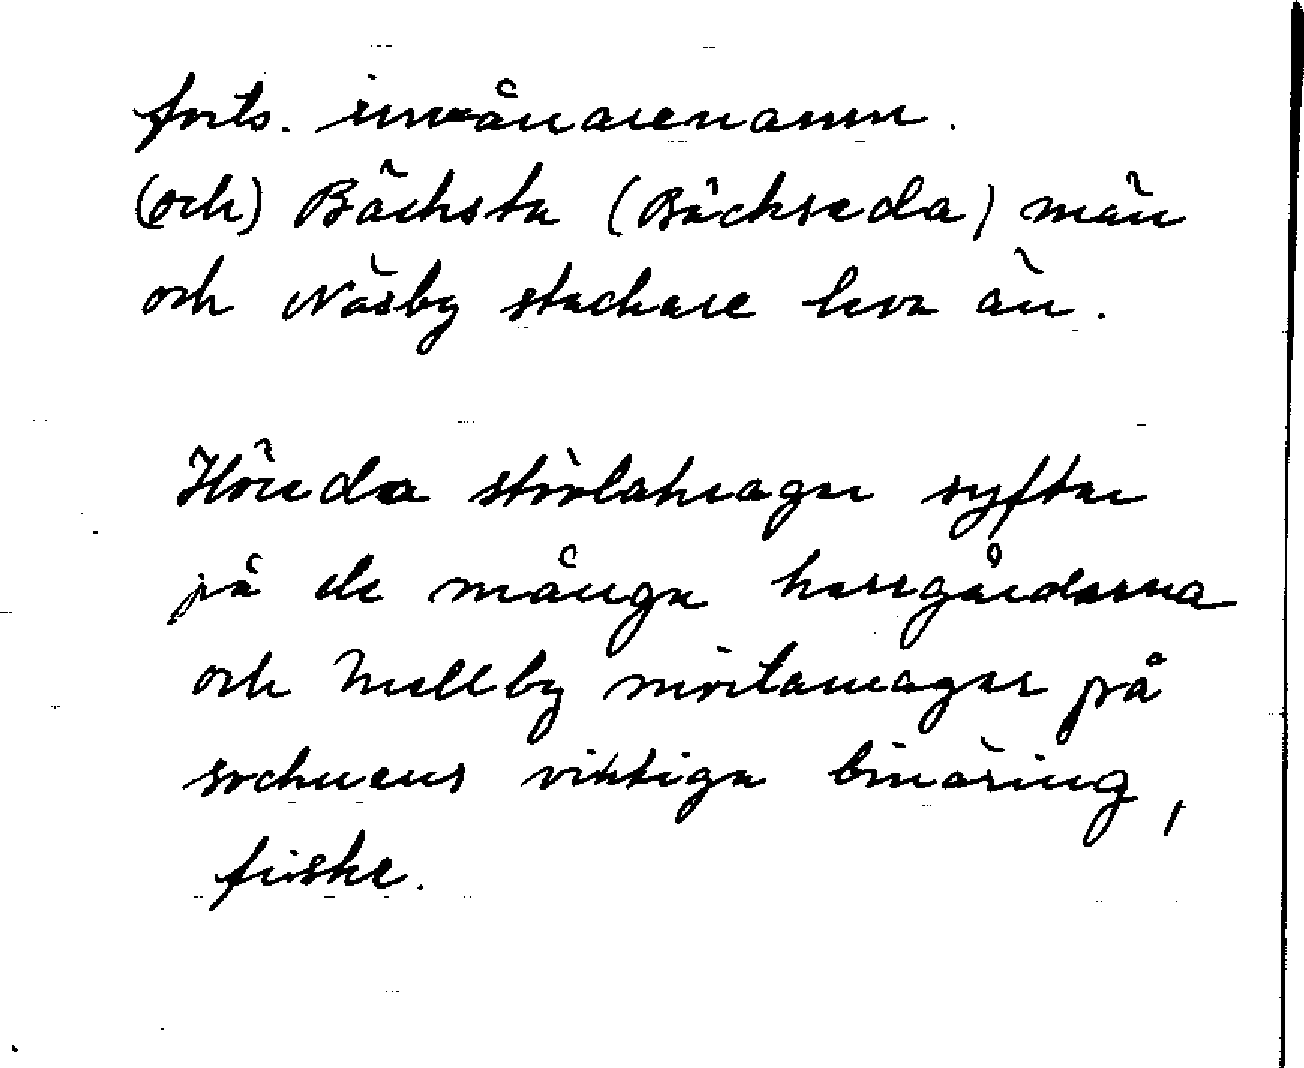 forts. invånarenamn.
(och) Bäcksta (Bäckseda) män
och Näsby stackare leva än.
Hörda stövlakragar syftar
på de många herrgårdarna
och Mellby mörtamagar på
socknens viktiga binäring,
fiske.